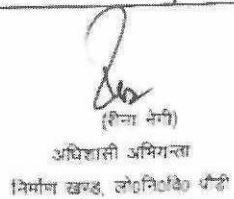 (रीना नेगी)
अधिशासी अभियन्ता
निर्माण खण्ड, लो०नि०वि० पौड़ी